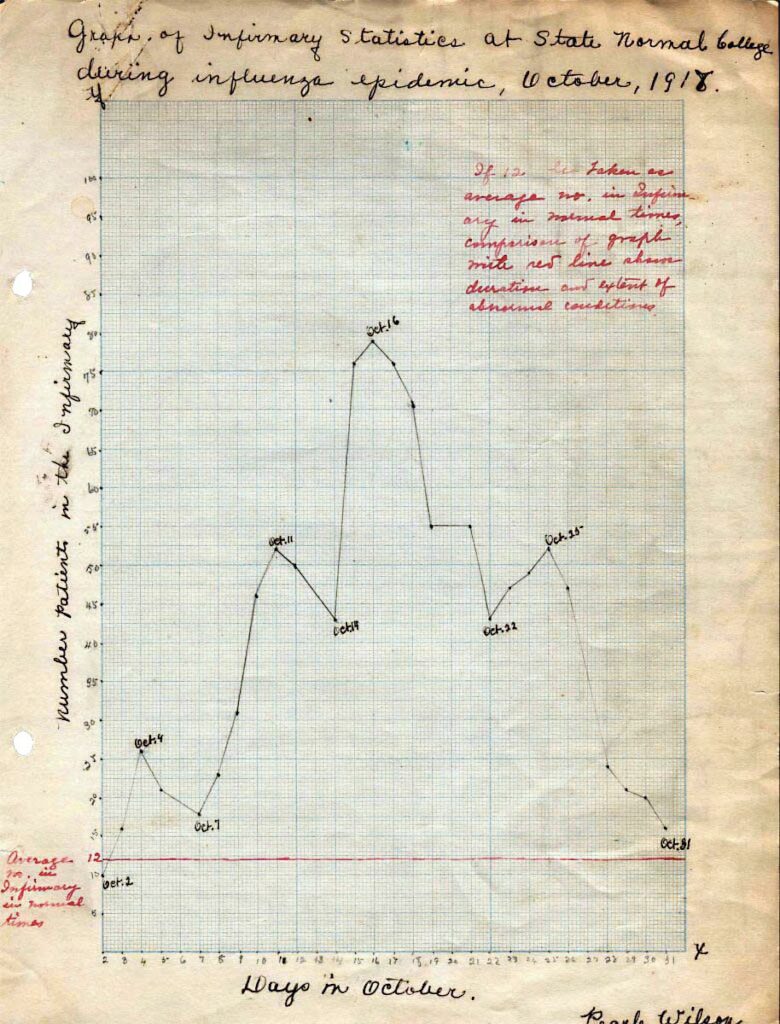 Graph. of Infirmary Statistics at State Normal College
during influenza epidemic, October, 1918.
Y
If 12 be taken as
average no. in Infirm-
ary in normal times,
comparison of graph
with red line shows
duration and extent of
abnormal conditions
Number Patients in the Infirmary
100
95
90
85
80
75
70
65
60
55
50
45
40
35
30
25
20
15
12
10
5
Oct. 16
Oct. 11
Oct. 25
Oct. 14
Oct. 22
Oct. 4
Oct. 7
Oct. 31
Oct. 2
Average
no. in
Infirmary
in normal
times
2 3 4 5 6 7 8 9 10 11 12 13 14 15 16 17 18 19 20 21 22 23 24 25 26 27 28 29 30 31
X
Days in October.
Pearle Wilson